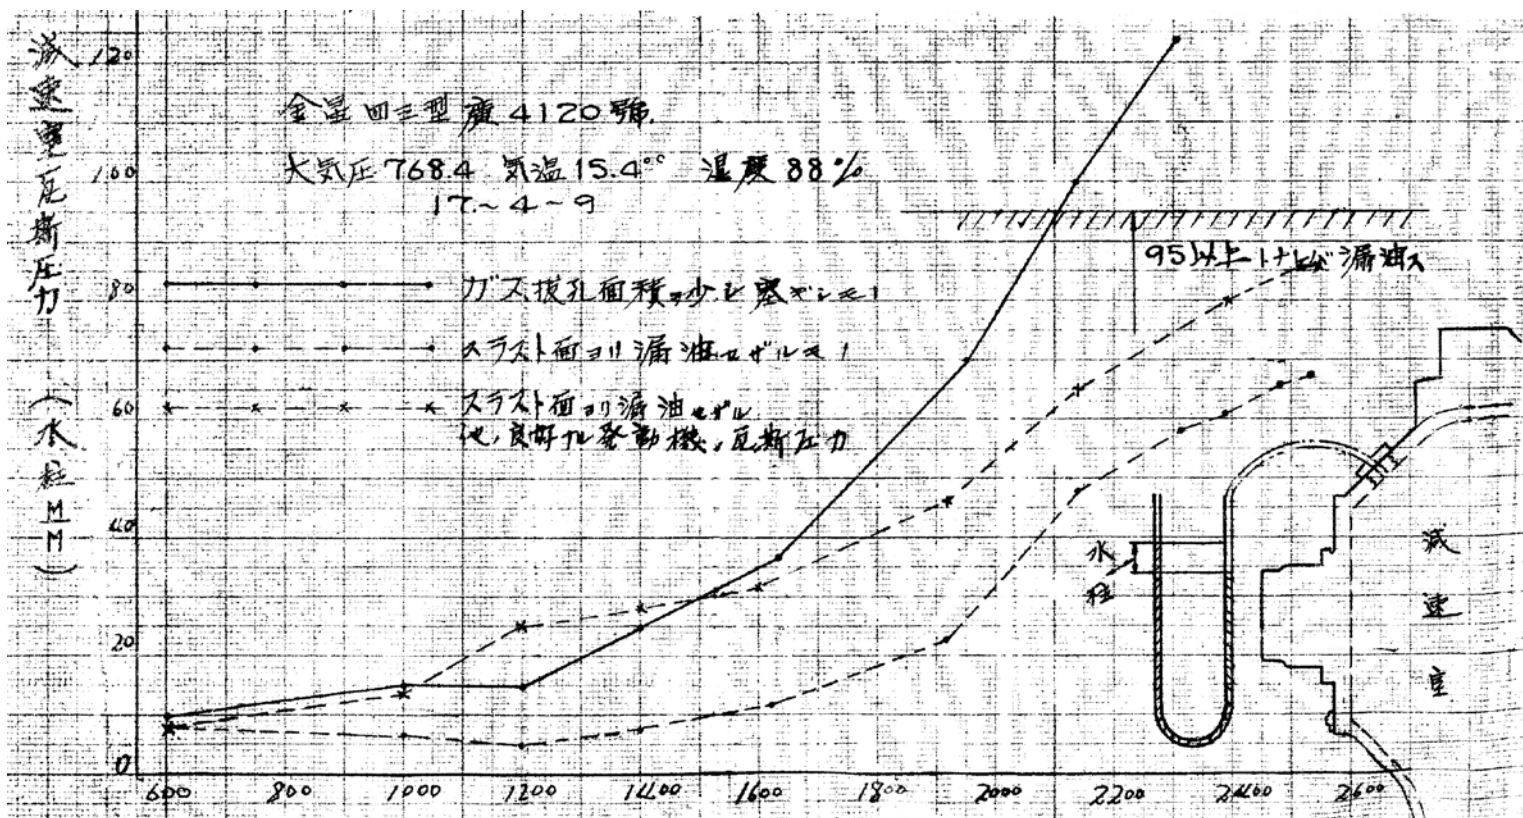 減速室瓦斯圧力(水柱MM)
120
100
80
60
40
20
0
金星四三型 廣4120號.
大気圧 768.4 気温 15.4°C 湿度 88%
17.~4~9
ガス抜孔面積ヲ少シ塞ギシモノ
スラスト面ヨリ漏油セザルモノ
スラスト面ヨリ漏油セザル
他ノ良好ナル発動機ノ瓦斯圧力
95以上トナレバ漏油ス
水柱
減速室
600 800 1000 1200 1400 1600 1800 2000 2200 2400 2600